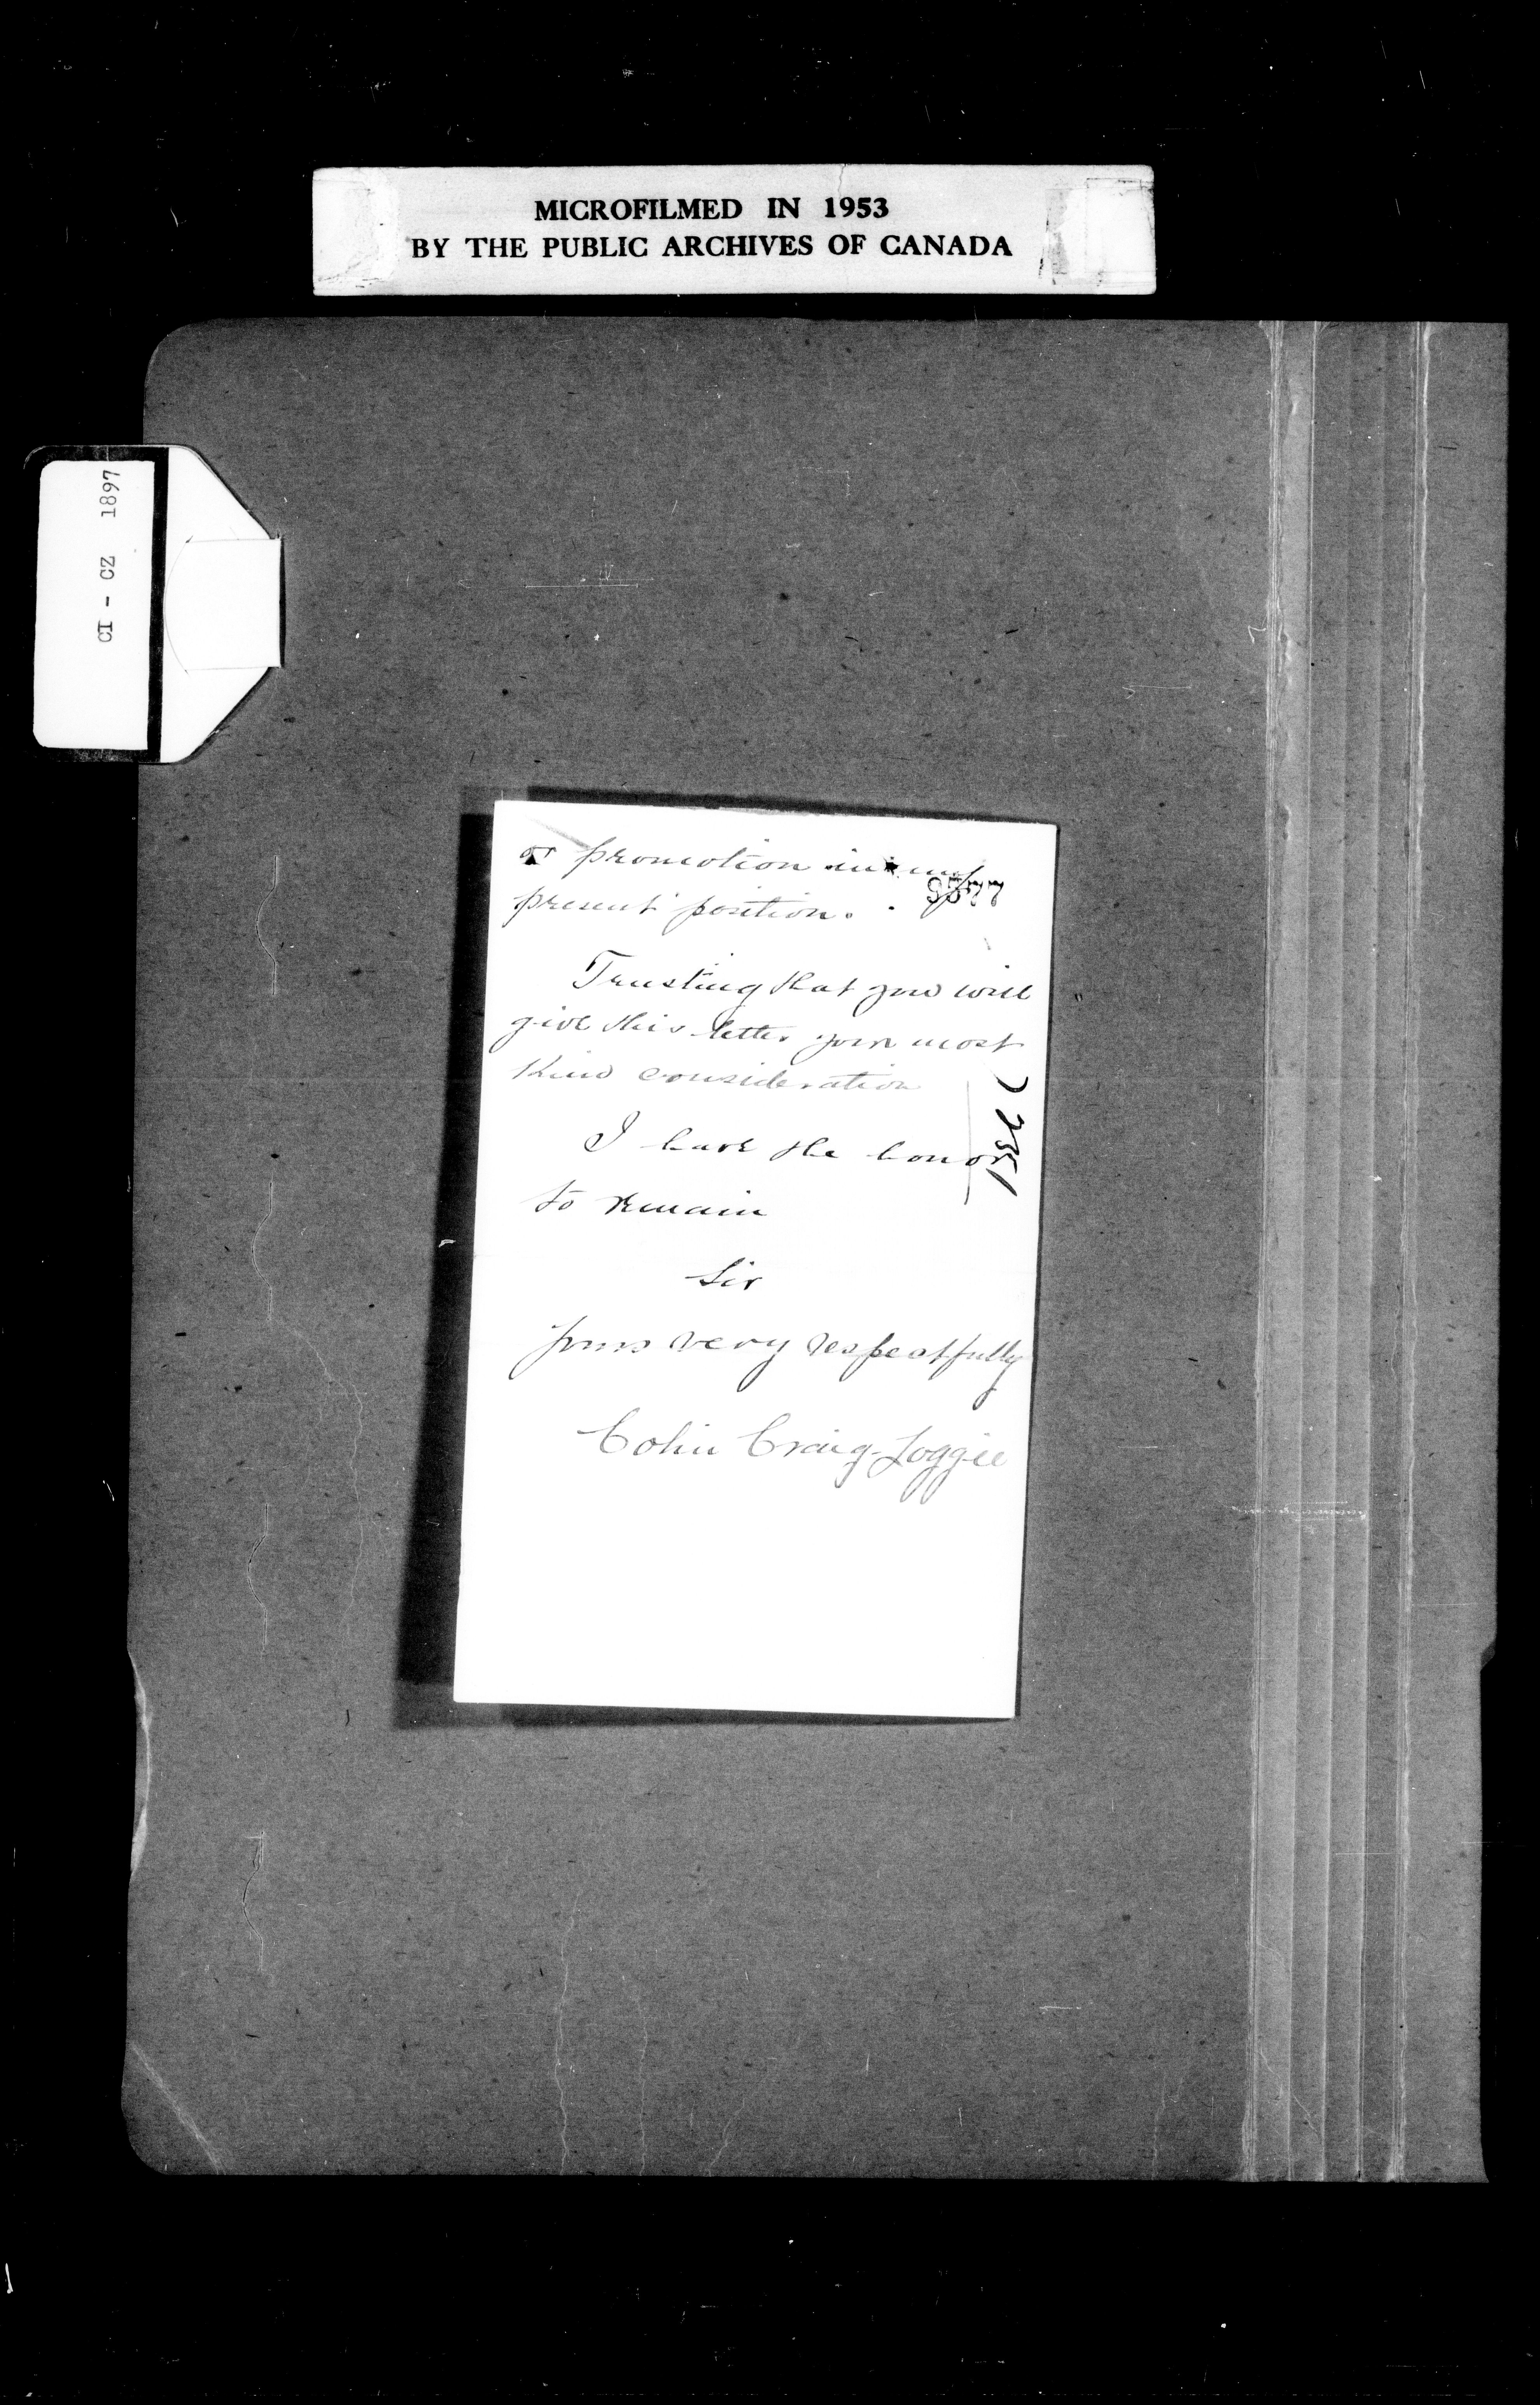 MICROFILMED IN 1953
BY THE PUBLIC ARCHIVES OF CANADA
CI - CZ 1897
or promotion in my
present position.
9577
Trusting that you will
give this letter your most
kind consideration
I have the honor
to remain
Sir
Yours very respectfully
Colin Craig Loggie